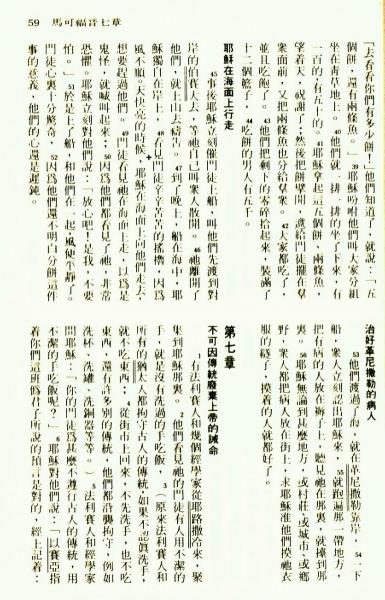 59 馬可福音七章
「去看看你們有多少餅！」他們知道了，就說：「五
個餅，還有兩條魚。」39耶穌吩咐他們叫大家分組
坐在青草地上。40他們就一排一排的坐了下來，有
一百的，有五十的。41耶穌拿起這五個餅，兩條魚，
望着天，祝謝了；然後把餅擘開，遞給門徒擺在羣
衆面前，又把兩條魚也分給羣衆。42大家都吃了，
並且吃飽了。43他們把剩下的零碎拾起來，裝滿了
十二個籃子，44吃餅的男人有五千。
耶穌在海面上行走
45事後耶穌立刻催門徒上船，叫他們先渡到對
岸的伯賽大去，等祂自己叫衆人散開。46祂離開了
他們，就上山去禱告。47到了晚上，船在海中，耶
穌獨自在岸上，48看見門徒辛辛苦苦的搖櫓，因爲
風不順。天快亮的時候，耶穌在海面上向他們走去，
想要趕過他們。49門徒看見祂在海面上走，以爲是
鬼怪，就喊叫起來；50因爲他們都看見了祂，非常
恐懼。耶穌立刻對他們說：「放心吧！是我，不要
怕。」51於是上了船，和他們在一起，風便平靜了。
門徒心裏十分驚奇，52因爲他們還不明白分餅這件
事的意義，他們的心還是遲鈍。
治好革尼撒勒的病人
53他們渡過了海，就在革尼撒勒靠岸，54一下
船，衆人立刻認出耶穌來，55就跑遍那一帶地方，
把有病的人放在褥子上，聽見祂在那裏，就擡到那
裏。56耶穌無論到甚麼地方，或村莊，或城市，或鄉
野，衆人都把病人放在街上，求耶穌准他們摸祂衣
服的繸子，摸着的人就都好了。
第七章
不可因傳統廢棄上帝的誡命
1有法利賽人和幾個經學家從耶路撒冷來，聚
集到耶穌那裏。2他們看見祂的門徒有人用不潔的
手，就是沒有洗過的手吃飯，3（原來法利賽人和
所有的猶太人都拘守古人的傳統，如果不認眞洗手，
就不吃東西；4從街市上回來，不先洗手，也不吃
東西；還有許多別的傳統，他們都沿襲拘守，例如
洗杯、洗罐、洗銅器等等。）5法利賽人和經學家
問耶穌：「你的門徒爲甚麼不遵行古人的傳統，用
不潔的手吃飯呢？」6耶穌對他們說：「以賽亞指
着你們這班僞君子所說的預言是對的，經上記着：